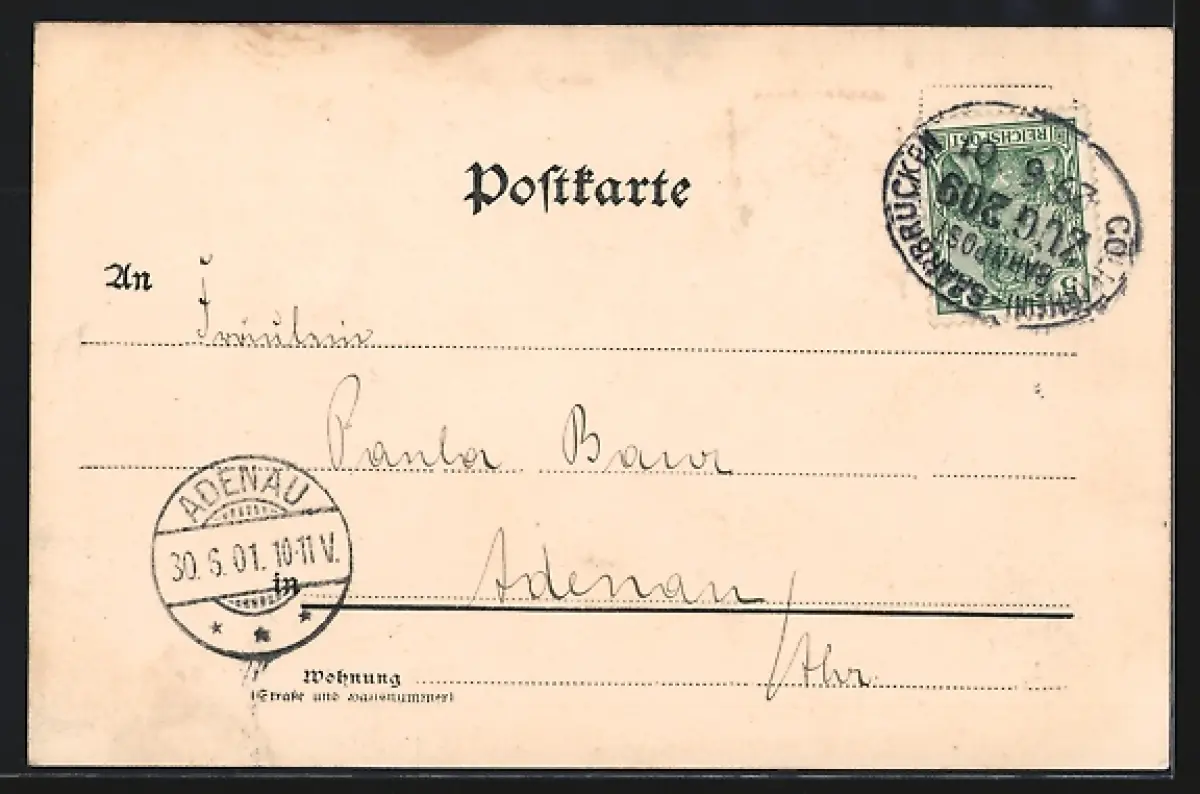 Postkarte
REICHSPOST
5
CÖLN (RHEIN) - SAARBRÜCKEN
BAHNPOST
ZUG 209
29 6 01
An
Fräulein
Paula Baur
Adenau
ADENAU
30.6.01.10-11V.
in
/Ahr.
Wohnung
(Straße und Hausnummer)